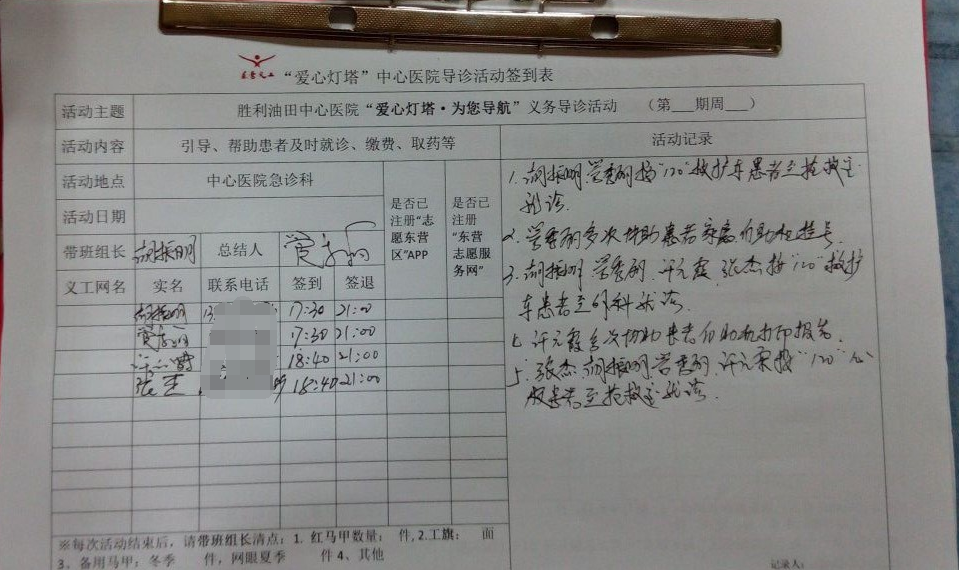 “爱心灯塔”中心医院导诊活动签到表
活动主题 胜利油田中心医院“爱心灯塔·为您导航”义务导诊活动 （第___期周___）
活动内容 引导、帮助患者及时就诊、缴费、取药等 活动记录
活动地点 中心医院急诊科 是否已注册“志愿东营区”APP 是否已注册“东营志愿服务网”
活动日期
带班组长 胡振明 总结人
义工网名 实名 联系电话 签到 签退
胡振明 13 17:30 21:00
17:30 21:00
许元霞 18:40 21:00
张杰 18:40 21:00
1. 胡振明 接“120”救护车患者至抢救室
就诊.
2. 多次协助患者家属自助机挂号.
3. 胡振明 许元霞 张杰 接“120”救护
车患者至 科就诊
许元霞多次协助患者自助机打印报告.
5. 张杰 胡振明 许元霞接“120”
患者至抢救室就诊.
※每次活动结束后，请带班组长清点：1. 红马甲数量： 件, 2.工旗： 面
3、备用马甲：冬季 件，网眼夏季 件 4、其他
记录人：